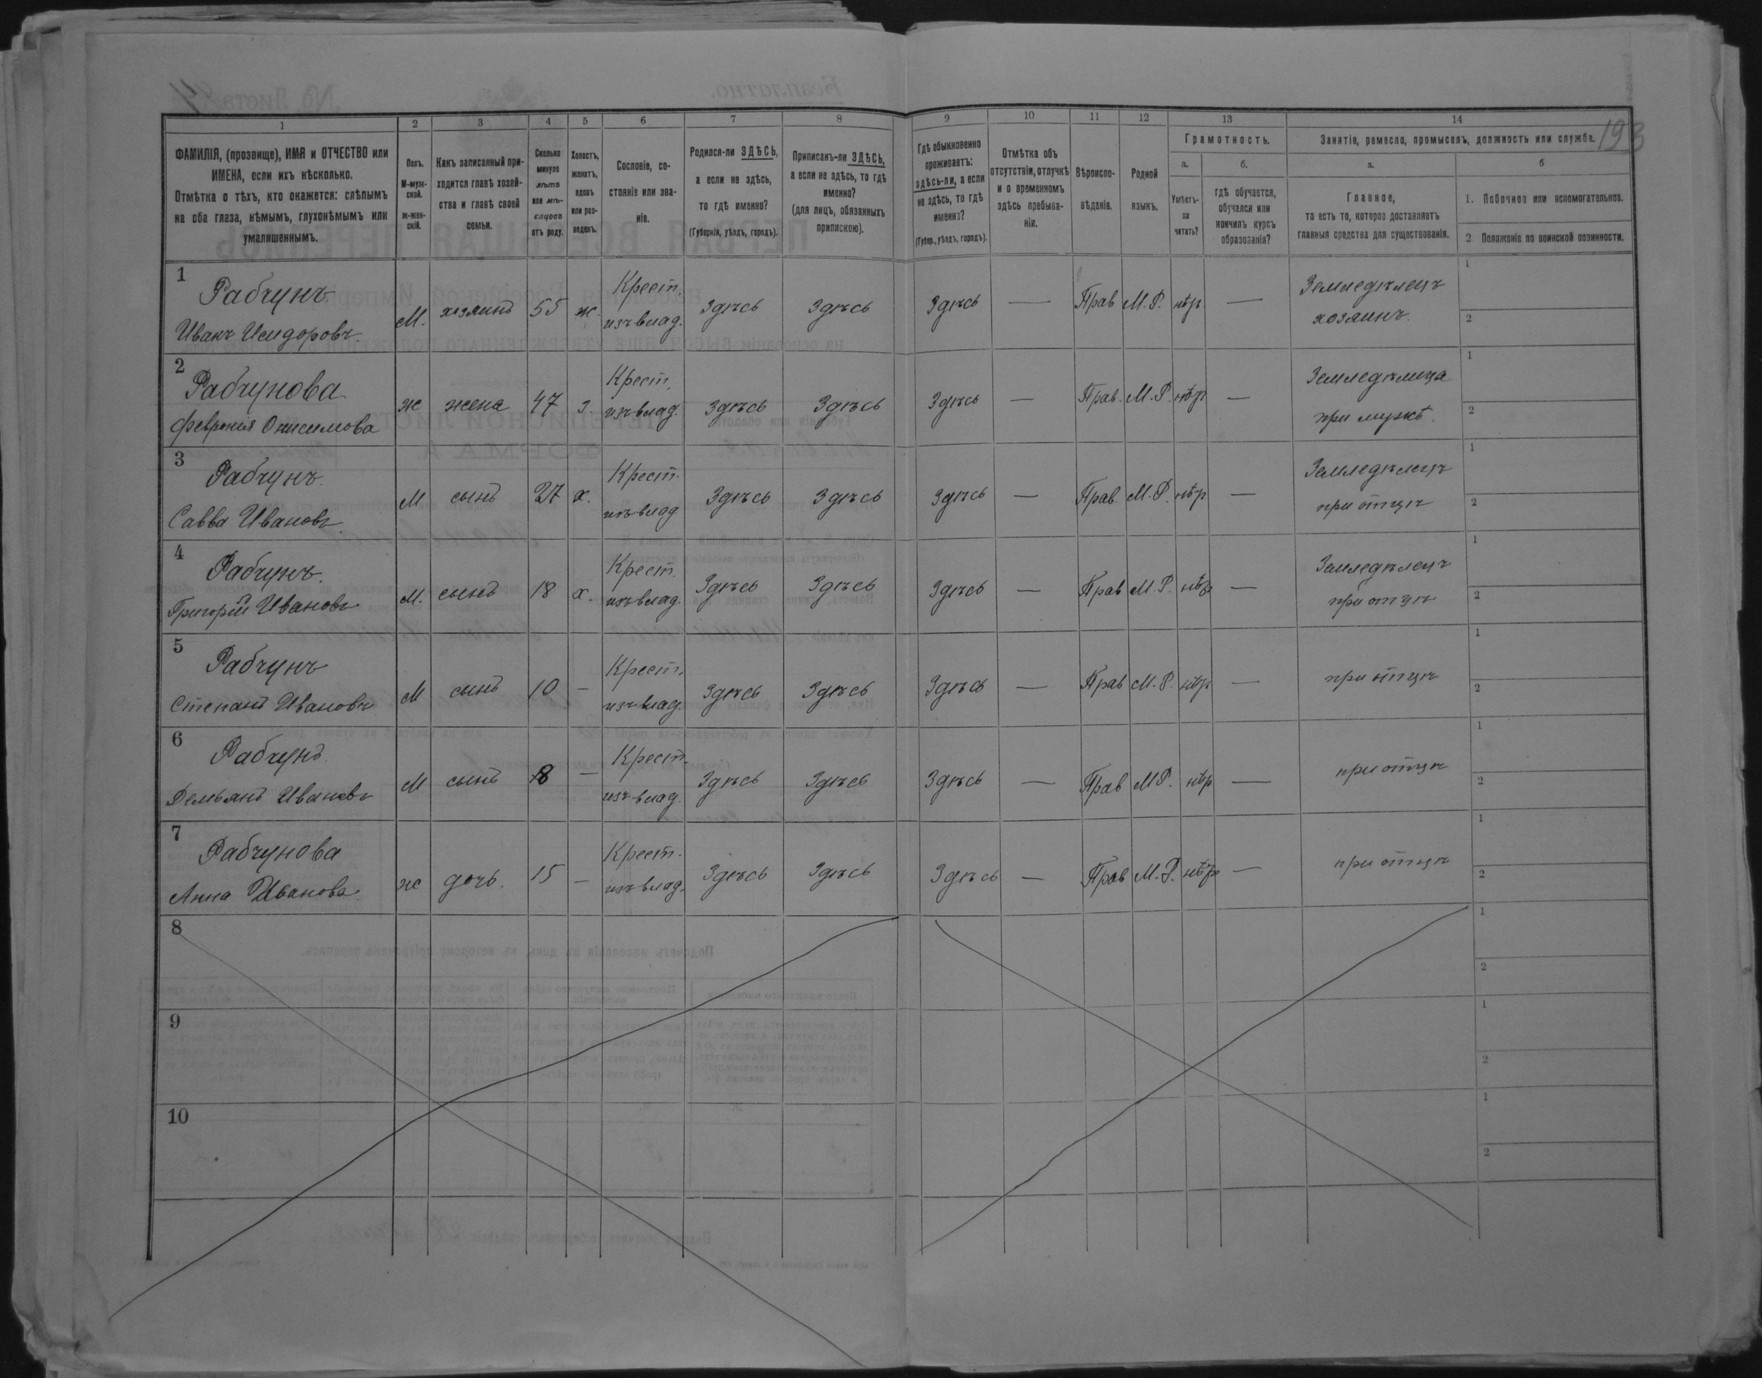 193
1 2 3 4 5 6 7 8 9 10 11 12 13 14
ФАМИЛІЯ, (прозвище), ИМЯ и ОТЧЕСТВО или
ИМЕНА, если ихъ нѣсколько.
Отмѣтка о тѣхъ, кто окажется: слѣпымъ
на оба глаза, нѣмымъ, глухонѣмымъ или
умалишеннымъ.
Полъ.
М-муж-
ской.
Ж-жен-
скій.
Какъ записанный при-
ходится главѣ хозяй-
ства и главѣ своей
семьи.
Сколько
минуло
лѣтъ
или мѣ-
сяцевъ
отъ роду.
Холостъ,
женатъ,
вдовъ
или раз-
веденъ.
Сословіе, со-
стояніе или зва-
ніе.
Родился-ли ЗДѢСЬ,
а если не здѣсь,
то гдѣ именно?
(Губернія, уѣздъ, городъ).
Приписанъ-ли ЗДѢСЬ,
а если не здѣсь, то гдѣ
именно?
(для лицъ, обязанныхъ
припискою).
Гдѣ обыкновенно
проживаетъ:
здѣсь-ли, а если
не здѣсь, то гдѣ
именно?
(Губер., уѣздъ, городъ).
Отмѣтка объ
отсутствіи, отлучкѣ
и о временномъ
здѣсь пребыва-
ніи.
Вѣроиспо-
вѣданіе.
Родной
языкъ.
Грамотность.
а.
Умѣетъ-
ли
читать?
б.
гдѣ обучается,
обучался или
кончилъ курсъ
образованія?
Занятіе, ремесло, промыселъ, должность или служба.
а.
Главное,
то есть то, которое доставляетъ
главныя средства для существованія.
б
1. Побочное или вспомогательное.
2. Положеніе по воинской повинности.
1
Рабчунъ
Иванъ Исидоровъ
М. хозяинъ 55 ж. Крест. изъ влад. Здѣсь Здѣсь Здѣсь — Прав М.Р. нѣтъ — Земледѣлецъ хозяинъ
1
2
2
Рабчунова
Февронія Онисимова
ж жена 47 з. Крест. изъ влад. Здѣсь Здѣсь Здѣсь — Прав. М.Р. нѣтъ — Земледѣлица при мужѣ
1
2
3
Рабчунъ
Савва Ивановъ
М сынъ 27 х. Крест. изъ влад Здѣсь Здѣсь Здѣсь — Прав. М.Р. нѣтъ — Земледѣлецъ при отцѣ
1
2
4
Рабчунъ
Григорій Ивановъ
М. сынъ 18 х. Крест. изъ влад. Здѣсь Здѣсь Здѣсь — Прав М.Р. нѣтъ — Земледѣлецъ при отцѣ
1
2
5
Рабчунъ
Степанъ Ивановъ
М сынъ 10 — Крест. изъ влад. Здѣсь Здѣсь Здѣсь — Прав М.Р. нѣтъ — при отцѣ
1
2
6
Рабчунъ
Демьянъ Ивановъ
М сынъ 8 — Крест. изъ влад. Здѣсь Здѣсь Здѣсь — Прав М.Р. нѣтъ — при отцѣ
1
2
7
Рабчунова
Анна Иванова
ж дочь. 15 — Крест. изъ влад. Здѣсь Здѣсь Здѣсь — Прав М.Р. нѣтъ — при отцѣ
1
2
8
1
2
9
1
2
10
1
2